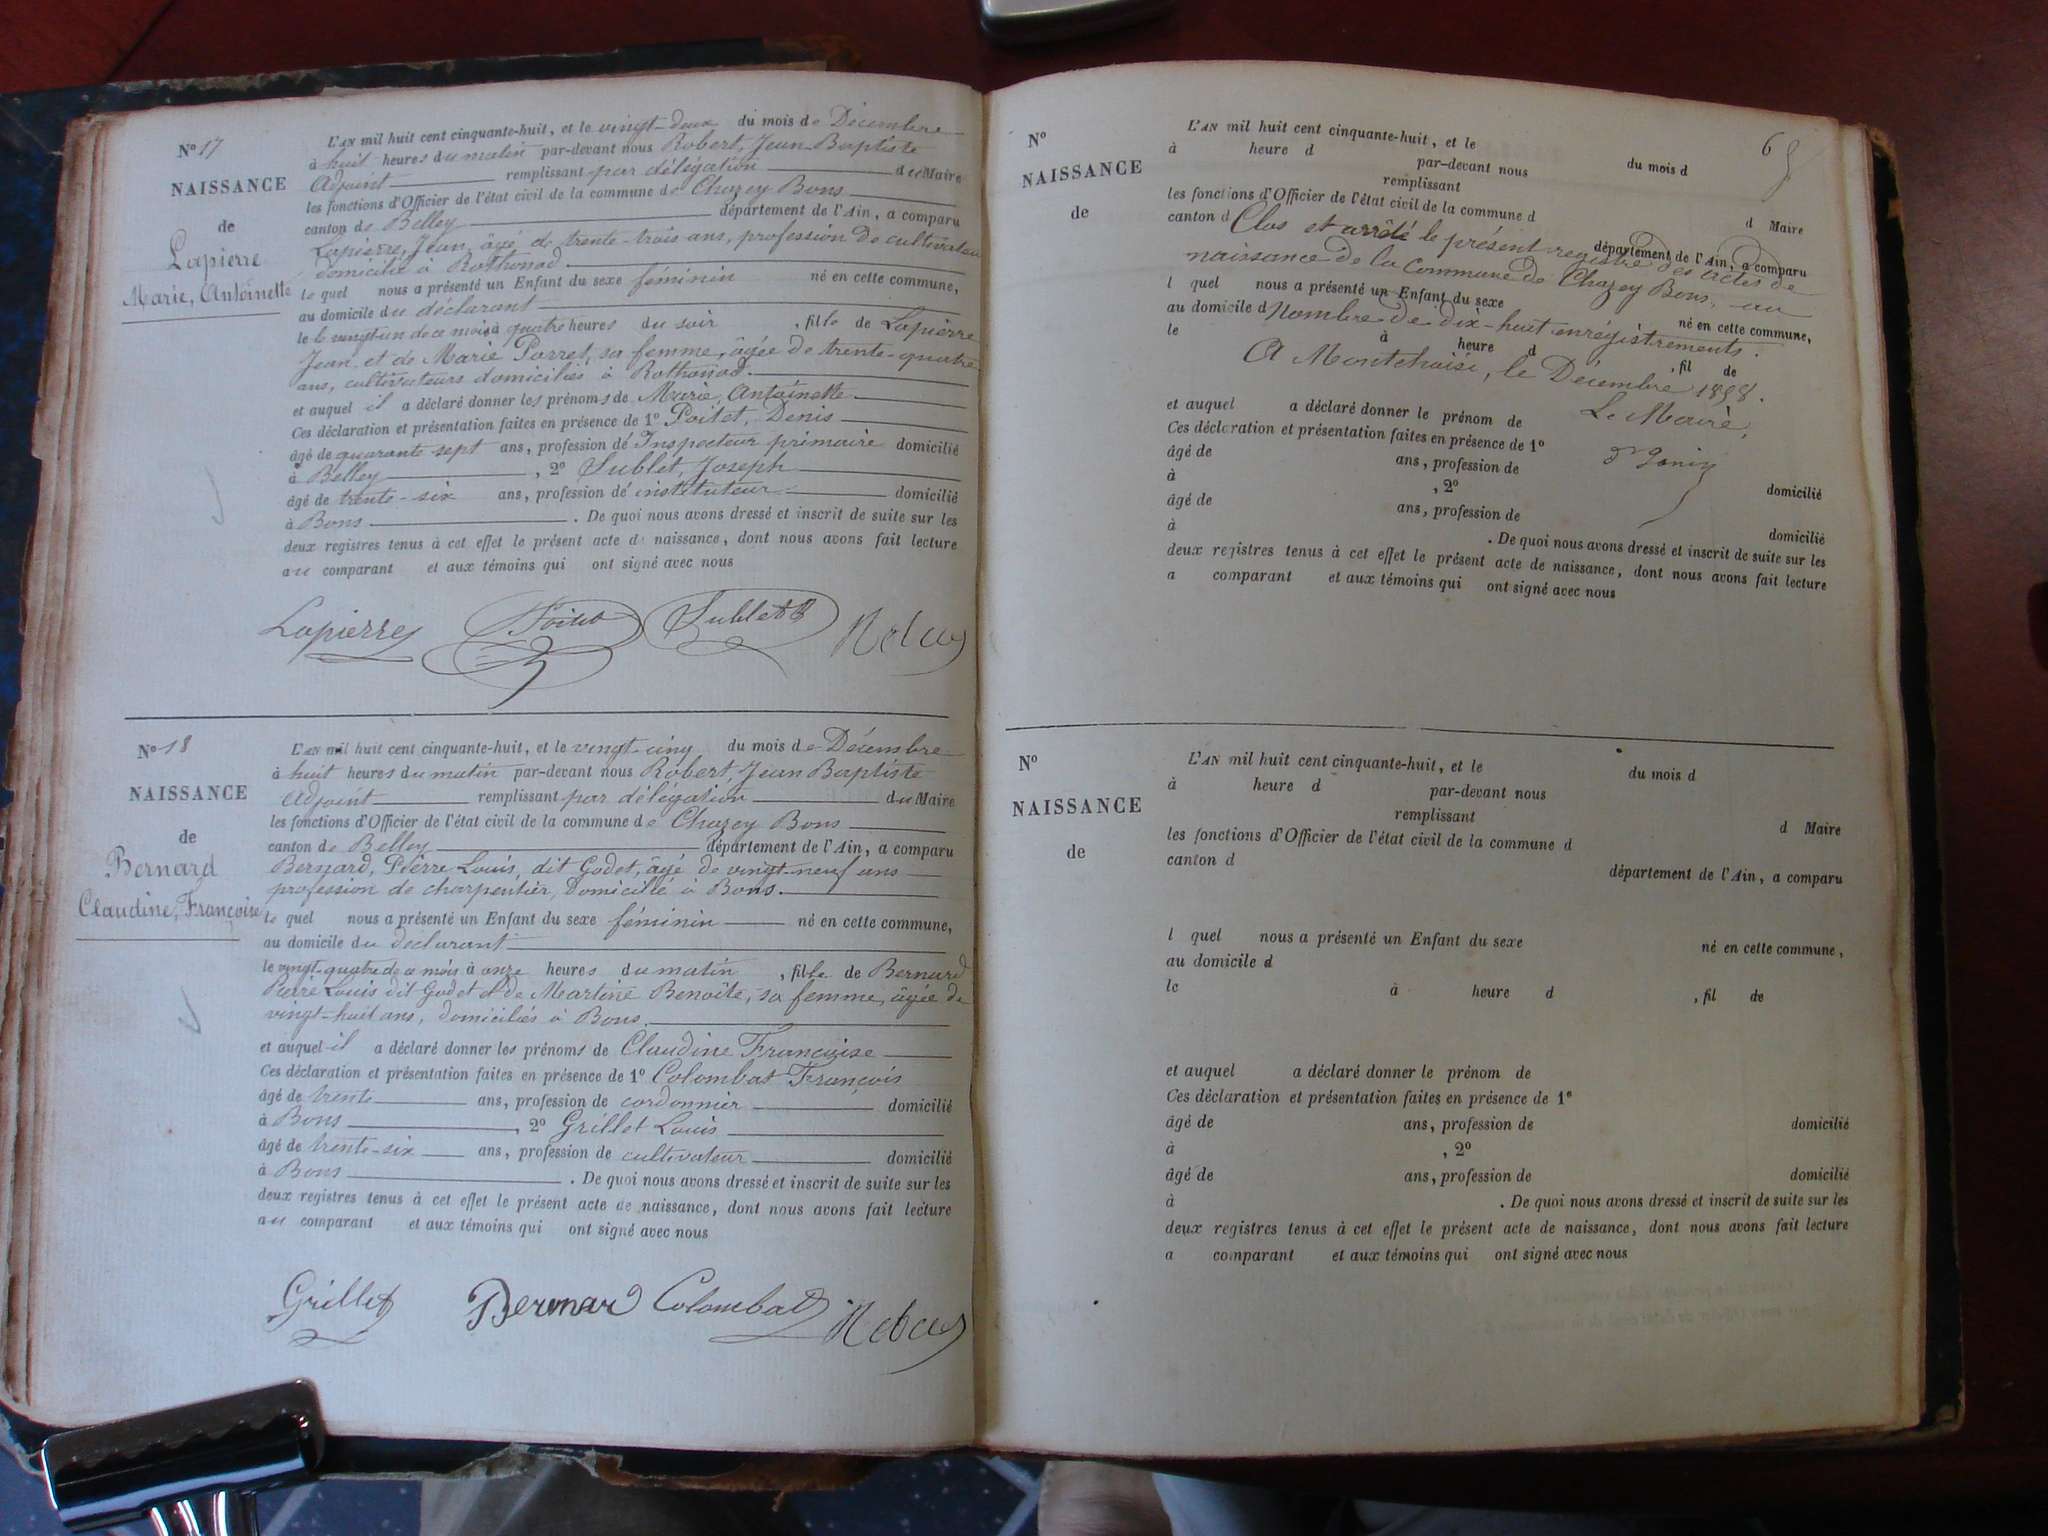 N° 17
NAISSANCE
de
Lapierre
Marie, Antoinette
L'AN mil huit cent cinquante-huit, et le vingt-deux du mois de Décembre
à huit heures du matin par-devant nous Robert, Jean Baptiste
Adjoint remplissant par délégation du Maire
les fonctions d'Officier de l'état civil de la commune de Chazey Bons
canton de Belley département de l'Ain, a comparu
Lapierre, Jean, âgé de trente-trois ans, profession de cultivateur
domicilié à Rothonod
le quel nous a présenté un Enfant du sexe féminin né en cette commune,
au domicile du déclarant
le vingt-un de ce mois à quatre heures du soir, fille de Lapierre
Jean et de Marie Porret, sa femme, âgée de trente-quatre
ans, cultivateurs domiciliés à Rothonod.
et auquel il a déclaré donner les prénoms de Marie, Antoinette
Ces déclaration et présentation faites en présence de 1° Poitet, Denis
âgé de quarante sept ans, profession de Inspecteur primaire domicilié
à Belley, 2° Sublet, Joseph
âgé de trente-six ans, profession de instituteur domicilié
à Bons. De quoi nous avons dressé et inscrit de suite sur les
deux registres tenus à cet effet le présent acte de naissance, dont nous avons fait lecture
au comparant et aux témoins qui ont signé avec nous
Lapierre Poitet Sublet
N° 18
NAISSANCE
de
Bernard
Claudine, Françoise
L'AN mil huit cent cinquante-huit, et le vingt cinq du mois de Décembre
à huit heures du matin par-devant nous Robert, Jean Baptiste
Adjoint remplissant par délégation du Maire
les fonctions d'Officier de l'état civil de la commune de Chazey Bons
canton de Belley département de l'Ain, a comparu
Bernard, Pierre Louis, dit Godet, âgé de vingt-neuf ans
profession de charpentier, Domicilié à Bons.
le quel nous a présenté un Enfant du sexe féminin né en cette commune,
au domicile du déclarant
le vingt-quatre de ce mois à onze heures du matin, fille de Bernard
Pierre Louis dit Godet et de Martine Benoîte, sa femme, âgée de
vingt-huit ans, domiciliés à Bons.
et auquel il a déclaré donner les prénoms de Claudine Françoise
Ces déclaration et présentation faites en présence de 1° Colombat François
âgé de trente ans, profession de cordonnier domicilié
à Bons, 2° Grillet Louis
âgé de trente-six ans, profession de cultivateur domicilié
à Bons. De quoi nous avons dressé et inscrit de suite sur les
deux registres tenus à cet effet le présent acte de naissance, dont nous avons fait lecture
au comparant et aux témoins qui ont signé avec nous
Grillet Bernard Colombat
N°
NAISSANCE
de
L'AN mil huit cent cinquante-huit, et le du mois d
à heure d par-devant nous
remplissant d Maire
les fonctions d'Officier de l'état civil de la commune d
canton d département de l'Ain, a comparu
Clos et arrêté le présent registre des actes de
naissance de la commune de Chazey Bons, au
l quel nous a présenté un Enfant du sexe né en cette commune,
au domicile d
Nombre de dix-huit enrégistrements.
le à heure d, fil de
A Montchoisi, le Décembre 1858.
Le Maire,
et auquel a déclaré donner le prénom de
Ces déclaration et présentation faites en présence de 1°
âgé de ans, profession de domicilié
à, 2°
âgé de ans, profession de domicilié
à. De quoi nous avons dressé et inscrit de suite sur les
deux registres tenus à cet effet le présent acte de naissance, dont nous avons fait lecture
a comparant et aux témoins qui ont signé avec nous
N°
NAISSANCE
de
L'AN mil huit cent cinquante-huit, et le du mois d
à heure d par-devant nous
remplissant d Maire
les fonctions d'Officier de l'état civil de la commune d
canton d département de l'Ain, a comparu
l quel nous a présenté un Enfant du sexe né en cette commune,
au domicile d
le à heure d, fil de
et auquel a déclaré donner le prénom de
Ces déclaration et présentation faites en présence de 1°
âgé de ans, profession de domicilié
à, 2°
âgé de ans, profession de domicilié
à. De quoi nous avons dressé et inscrit de suite sur les
deux registres tenus à cet effet le présent acte de naissance, dont nous avons fait lecture
a comparant et aux témoins qui ont signé avec nous